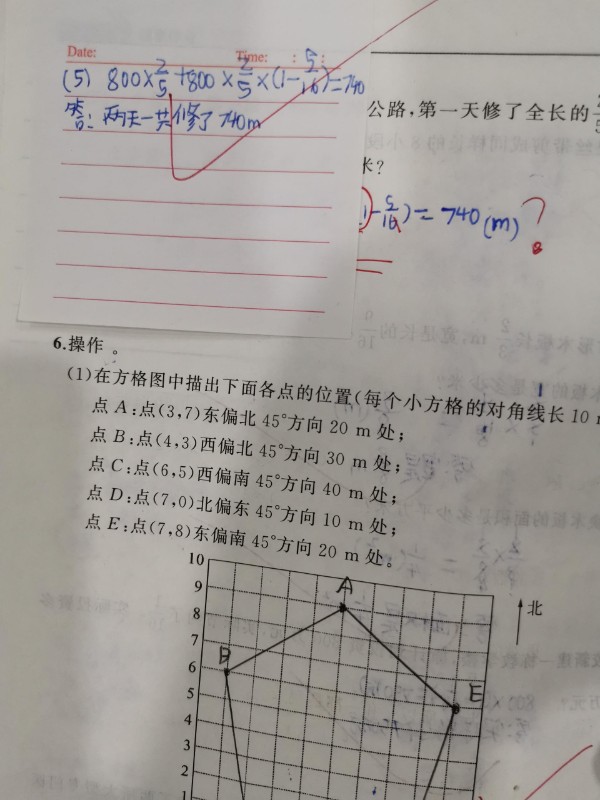 Date: Time: : :
(5) 800×2/5+800×2/5×(1-5/16)=740
答:两天一共修了740m
公路,第一天修了全长的
米?
1-5/16)=740(m)?
6.操作。
(1)在方格图中描出下面各点的位置(每个小方格的对角线长10
点A:点(3,7)东偏北45°方向20 m处;
点B:点(4,3)西偏北45°方向30 m处;
点C:点(6,5)西偏南45°方向40 m处;
点D:点(7,0)北偏东45°方向10 m处;
点E:点(7,8)东偏南45°方向20 m处。
10
9
A
北
8
7
B
6
E
5
4
3
2
1